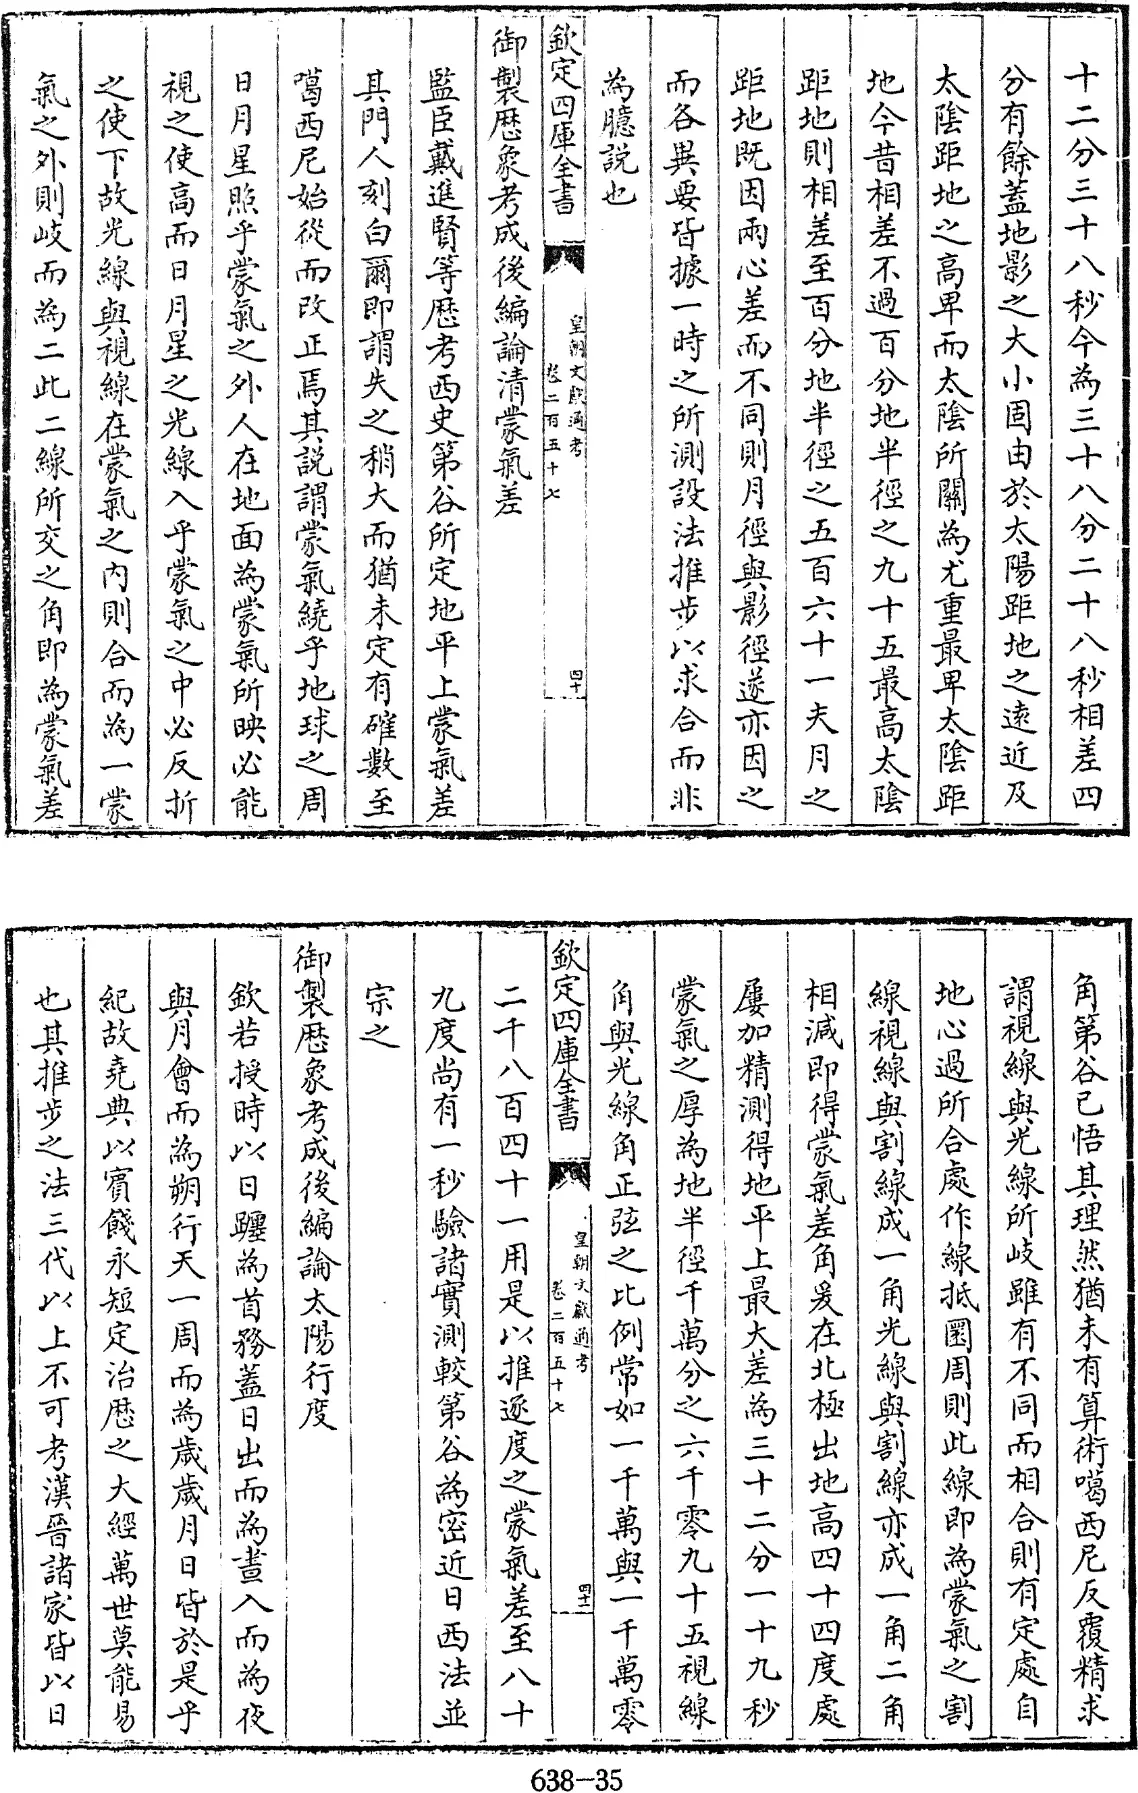 十二分三十八秒今為三十八分二十八秒相差四
分有餘蓋地影之大小固由於太陽距地之遠近及
太陰距地之高卑而太陰所關為尤重最卑太陰距
地今昔相差不過百分地半徑之九十五最高太陰
距地則相差至百分地半徑之五百六十一夫月之
距地既因兩心差而不同則月徑與影徑遂亦因之
而各異要皆據一時之所測設法推步以求合而非
為臆說也
欽定四庫全書
皇朝文獻通考
卷二百五十七
四十
御製歷象考成後編論清蒙氣差
監臣戴進賢等歷考西史第谷所定地平上蒙氣差
其門人刻白爾即謂失之稍大而猶未定有確數至
噶西尼始從而改正焉其說謂蒙氣繞乎地球之周
日月星照乎蒙氣之外人在地面為蒙氣所映必能
視之使高而日月星之光線入乎蒙氣之中必反折
之使下故光線與視線在蒙氣之内則合而為一蒙
氣之外則岐而為二此二線所交之角即為蒙氣差
角第谷已悟其理然猶未有算術噶西尼反覆精求
謂視線與光線所岐雖有不同而相合則有定處自
地心過所合處作線抵圜周則此線即為蒙氣之割
線視線與割線成一角光線與割線亦成一角二角
相減即得蒙氣差角爰在北極出地高四十四度處
屢加精測得地平上最大差為三十二分一十九秒
蒙氣之厚為地半徑千萬分之六千零九十五視線
角與光線角正弦之比例常如一千萬與一千萬零
欽定四庫全書
皇朝文獻通考
卷二百五十七
四十一
二千八百四十一用是以推逐度之蒙氣差至八十
九度尚有一秒驗諸實測較第谷為密近日西法並
宗之
御製歷象考成後編論太陽行度
欽若授時以日躔為首務蓋日出而為晝入而為夜
與月會而為朔行天一周而為歲歲月日皆於是乎
紀故堯典以賓餞永短定治歷之大經萬世莫能易
也其推步之法三代以上不可考漢晉諸家皆以日
638-35